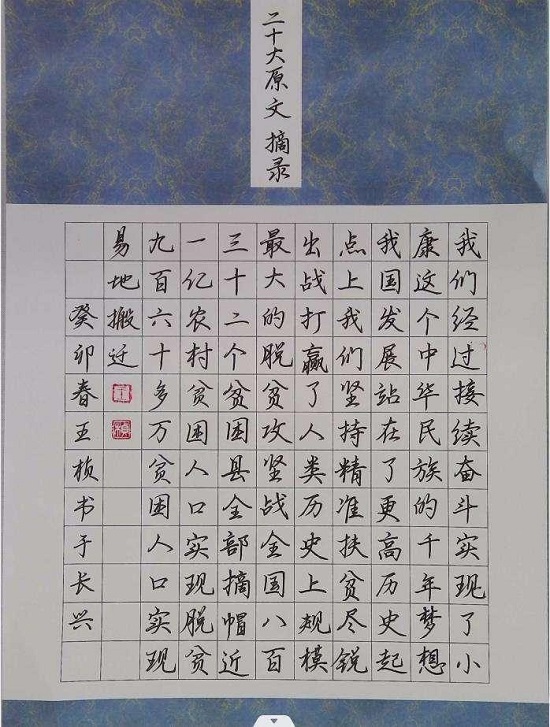 二十大原文摘录
我们经过接续奋斗实现了小
康这个中华民族的千年梦想
我国发展站在了更高历史起
点上我们坚持精准扶贫尽锐
出战打赢了人类历史上规模
最大的脱贫攻坚战全国八百
三十二个贫困县全部摘帽近
一亿农村贫困人口实现脱贫
九百六十多万贫困人口实现
易地搬迁
癸卯春王桢书于长兴